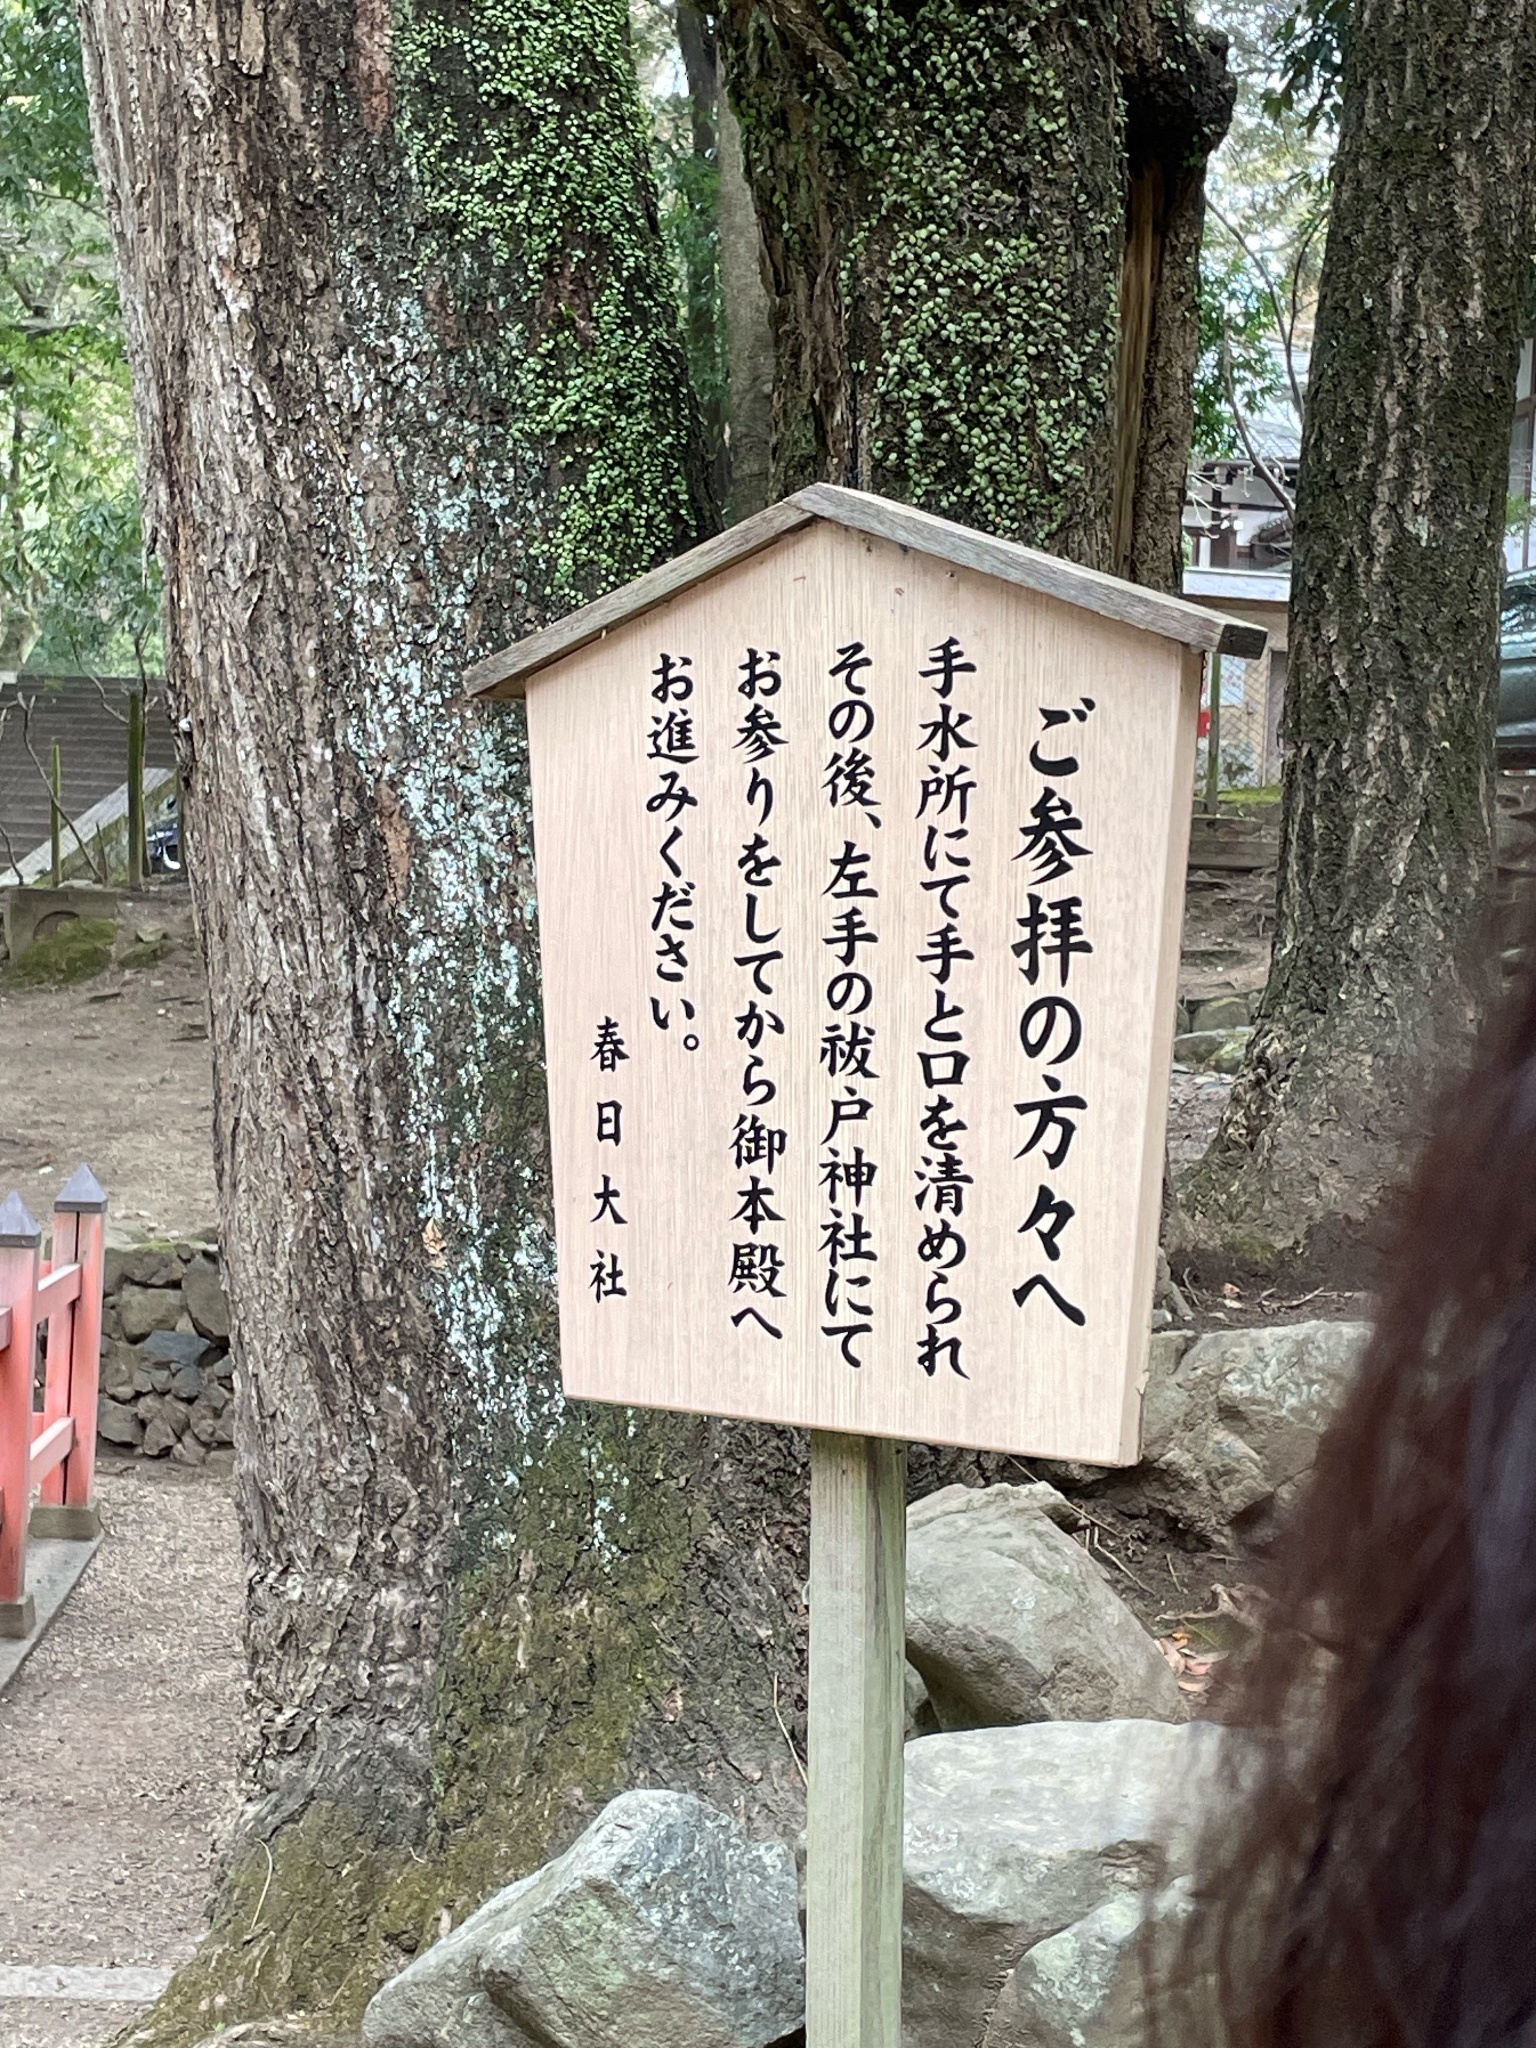 ご参拝の方々へ
手水所にて手と口を清められ
その後、左手の祓戸神社にて
お参りをしてから御本殿へ
お進みください。
春日大社